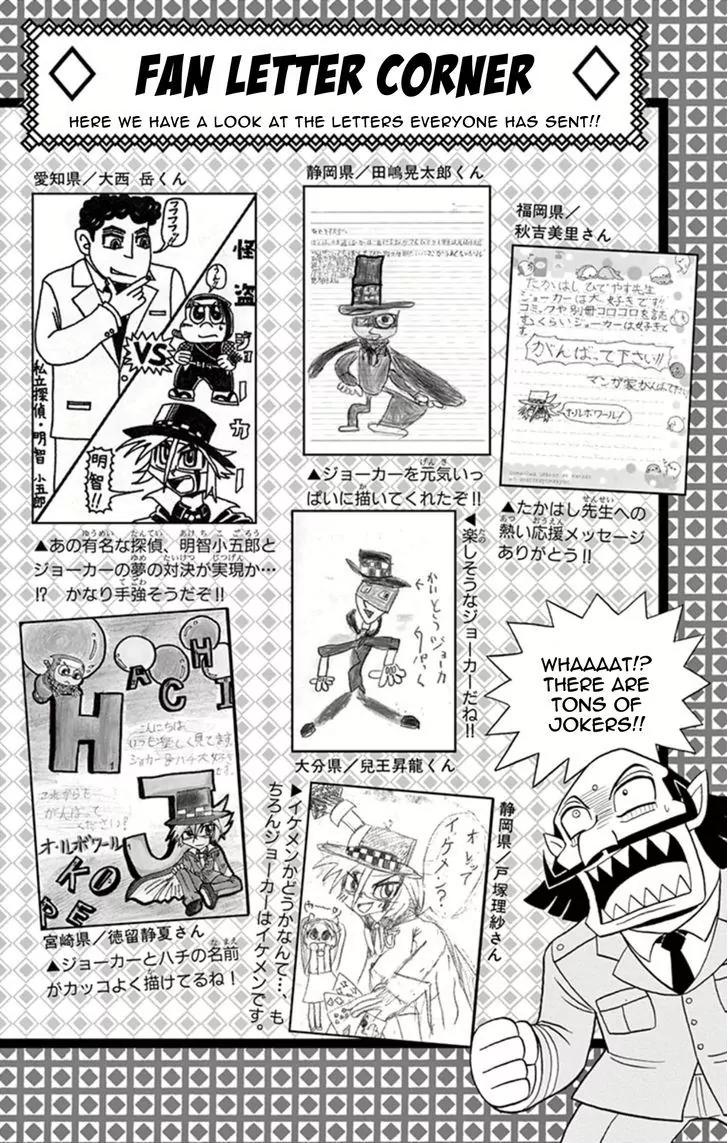 FAN LETTER CORNER
HERE WE HAVE A LOOK AT THE LETTERS EVERYONE HAS SENT!!
愛知県／大西 岳くん
フフフフ!!
怪盗ジョーカー
VS
私立探偵・明智小五郎
明智!!
▲あの有名な探偵、明智小五郎と
ジョーカーの夢の対決が実現か…
!? かなり手強そうだぞ!!
静岡県／田嶋晃太郎くん
▲ジョーカーを元気いっ
ぱいに描いてくれたぞ!!
福岡県／
秋吉美里さん
たかはし ひでやす先生
ジョーカーは大好きです!!
コミックや別冊コロコロを読
むくらいジョーカーは好きで
す
がんばって下さい!!
マンガ家がんばって下さい
オ・ルボワール!
▲たかはし先生への
熱い応援メッセージ
ありがとう!!
かいとうジョーカー
◀楽しそうなジョーカーだね!!
大分県／兒王昇龍くん
WHAAAAT!?
THERE ARE
TONS OF
JOKERS!!
HACHI
こんにちは
いつも楽しく見てます
ジョーカー&ハチ大好き
です。
これからも
がんばって
ください?
オ・ルボワール
JOKER
宮崎県／徳留静夏さん
▲ジョーカーとハチの名前
がカッコよく描けてるね!
オレって
イケメン?
静岡県／戸塚理紗さん
▶イケメンかどうかなんて…、も
ちろんジョーカーはイケメンです。